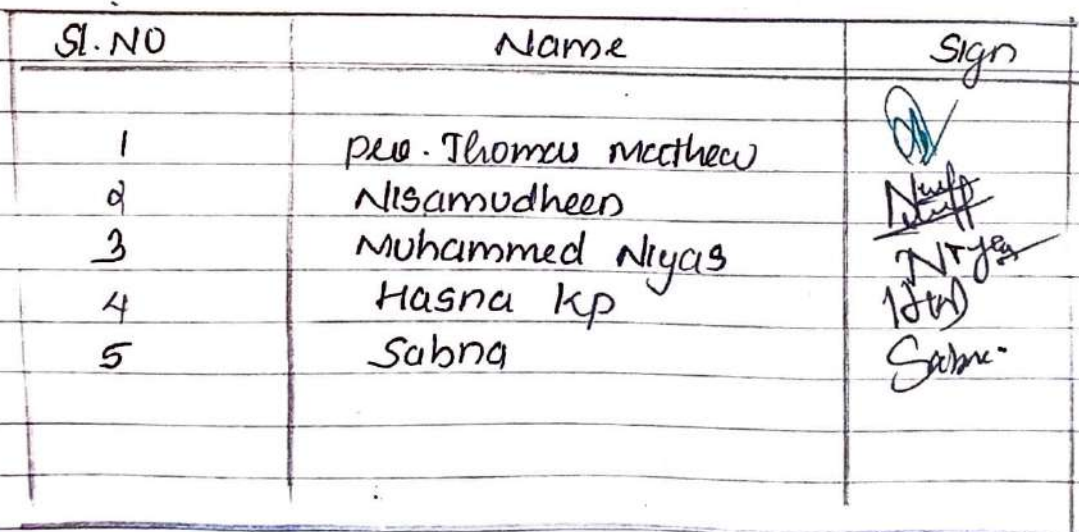 Sl. NO Name Sign
1 Thomas Mathew
2 Nisamudheen
3 Muhammed Niyas Niyas
4 Hasna KP
5 Sabna Sabna